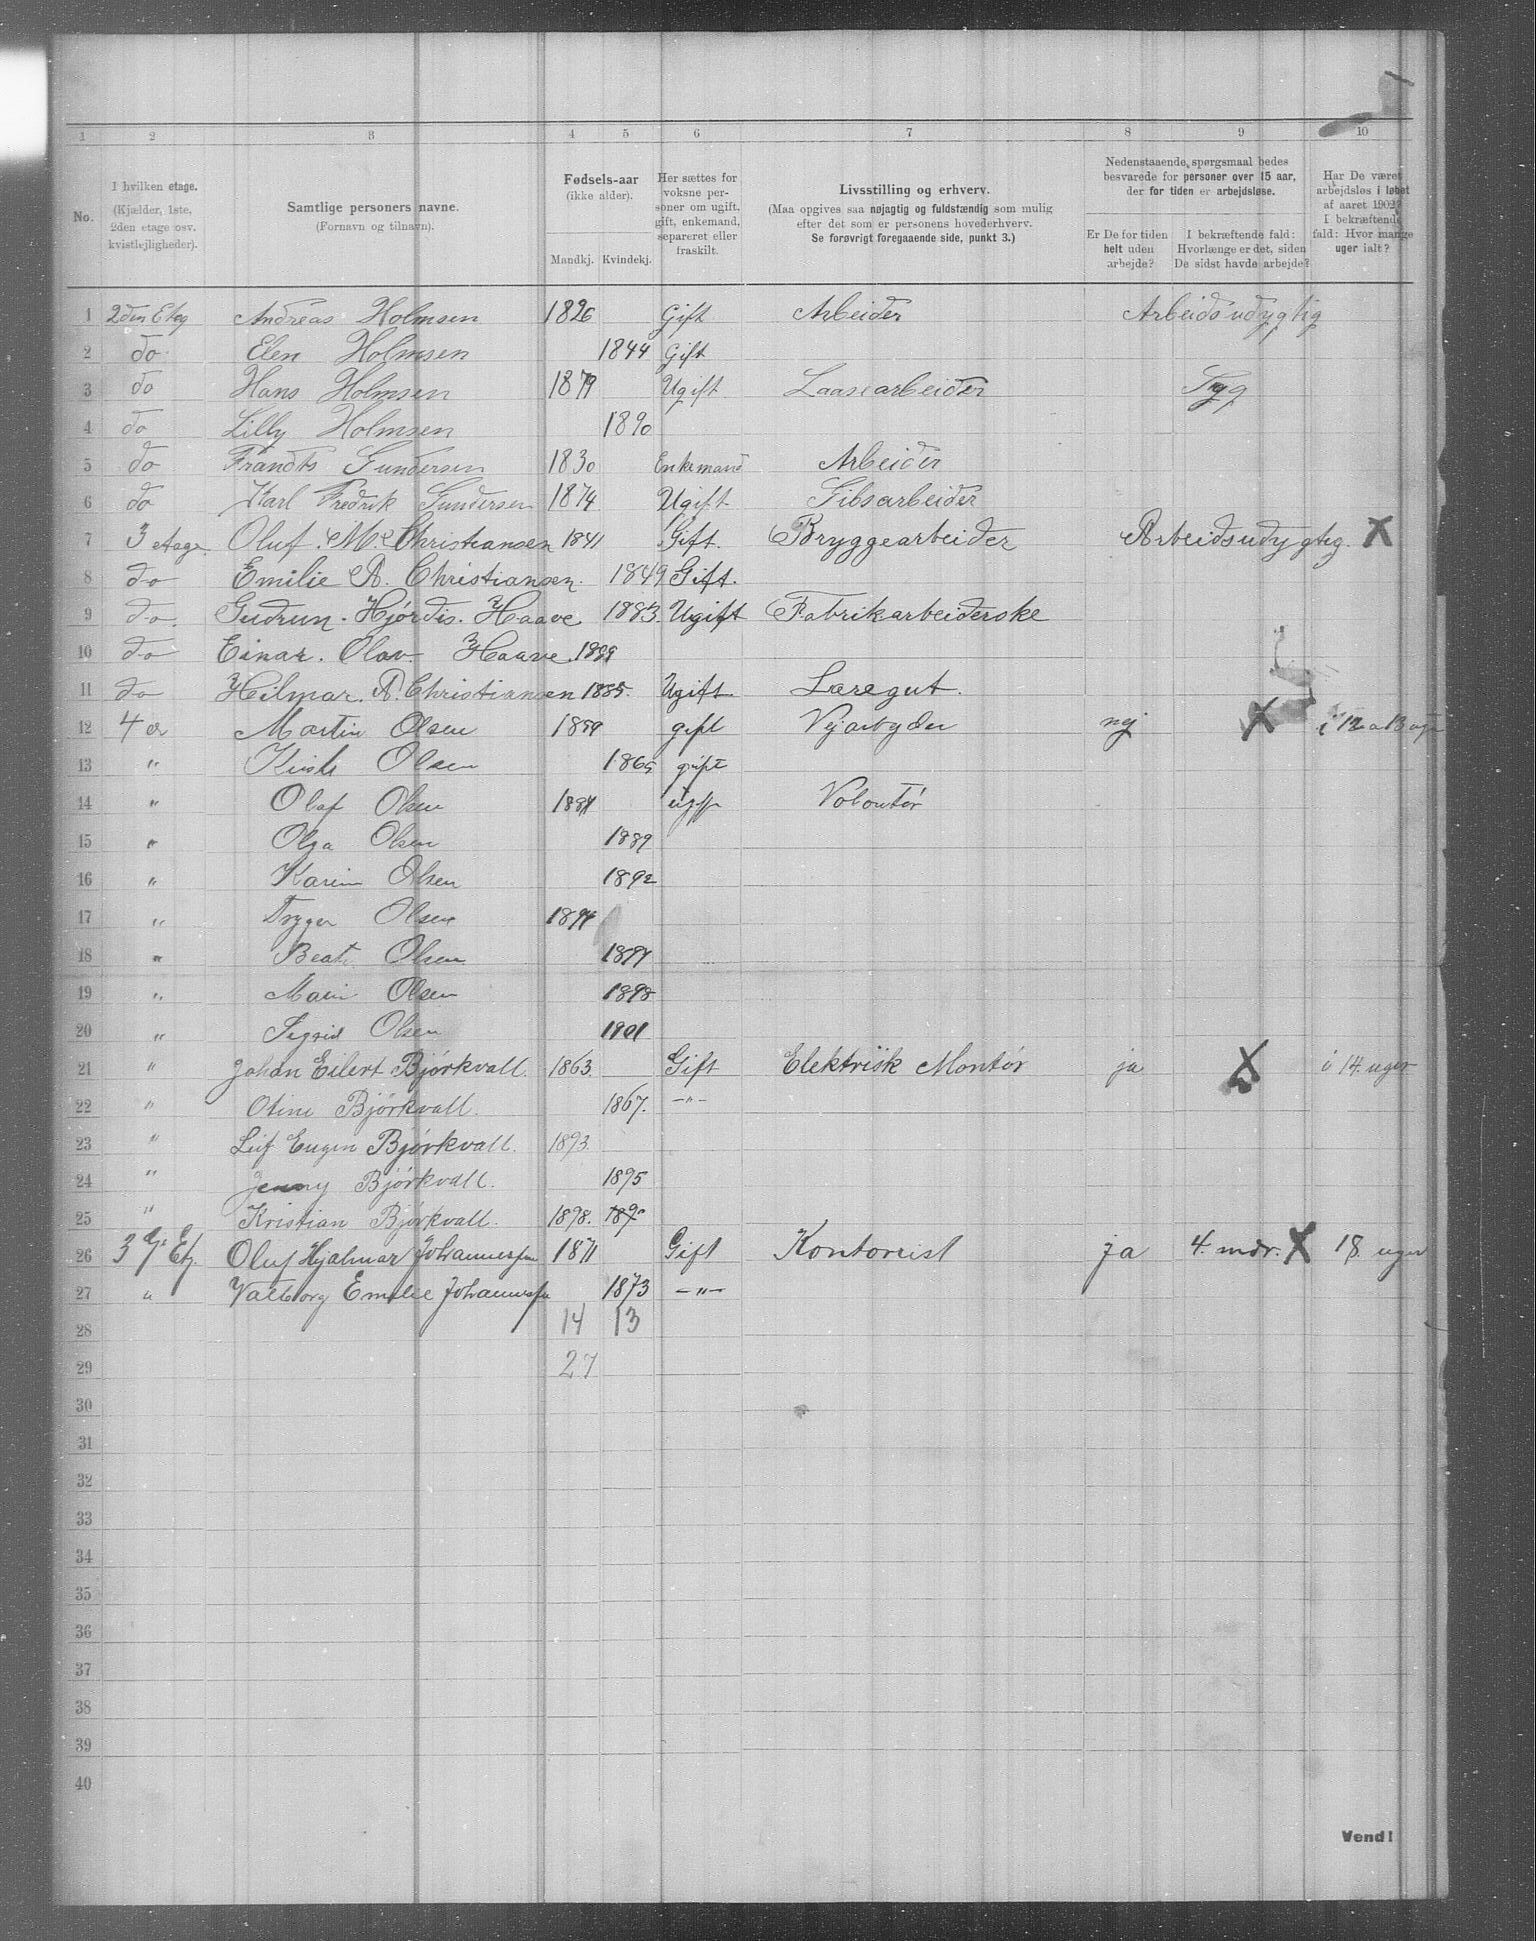 1 2 3 4 5 6 7 8 9 10
No.
I hvilken etage.
(Kjælder, 1ste,
2den etage osv.
kvistlejligheder).
Samtlige personers navne.
(Fornavn og tilnavn).
Fødsels-aar
(ikke alder).
Mandkj. Kvindekj.
Her sættes for
voksne per-
soner om ugift,
gift, enkemand,
separeret eller
fraskilt.
Livsstilling og erhverv.
(Maa opgives saa nøjagtig og fuldstændig som mulig
efter det som er personens hovederhverv.
Se forøvrigt foregaaende side, punkt 3.)
Nedenstaaende spørgsmaal bedes
besvarede for personer over 15 aar,
der for tiden er arbejdsløse.
Er De for tiden
helt uden
arbejde?
I bekræftende fald:
Hvorlænge er det, siden
De sidst havde arbejde?
Har De været
arbejdsløs i løbet
af aaret 1902?
I bekræftende
fald: Hvor mange
uger ialt?
1 2den Etag Andreas Holmsen 1826 Gift Arbeider Arbeidsudygtig
2 do Elen Holmsen 1844 Gift
3 do Hans Holmsen 1879 Ugift Laasearbeider Syg
4 do Lilly Holmsen 1890
5 do Frandts Gundersen 1830 Enkemand Arbeider
6 do Karl Fredrik Gundersen 1874 Ugift Gibsarbeider
7 3 etage Oluf. M. Christiansen 1841 Gift. Bryggearbeider Arbeidsudygtig. X
8 do Emilie A. Christiansen. 1849 Gift.
9 do. Gudrun. Hjørdis. Haave 1883. Ugift Fabrikarbeiderske
10 do Einar. Olav. Haave. 1889
11 do Hilmar. A. Christiansen 1885. Ugift. Læregut.
12 4 Martin Olsen 1859 gift Vejarbyder nej X i 12 a 13
13 " Olsen 1865 gift
14 " Olaf Olsen 1884 Volontør
15 " Olga Olsen 1889
16 " Karin Olsen 1892
17 " Trygve Olsen 1894
18 " Beate Olsen 1897
19 " Marie Olsen 1898
20 " Sigrid Olsen 1901
21 " Johan Eilert Bjørkvall. 1863. Gift Elektrisk Montør ja X i 14 uger
22 " Otine Bjørkvall. 1867. -"-
23 " Leif Eugen Bjørkvall. 1893.
24 " Jenny Bjørkvall. 1895
25 " Kristian Bjørkvall. 1898.
26 3 Etg. Oluf Hjalmar Johannessen 1871 Gift Kontorist ja 4 mdr. X 18 uger
27 " Valborg Emilie Johannessen 1873 -"-
28 14 13
29 27
30
31
32
33
34
35
36
37
38
39
40
Vend!